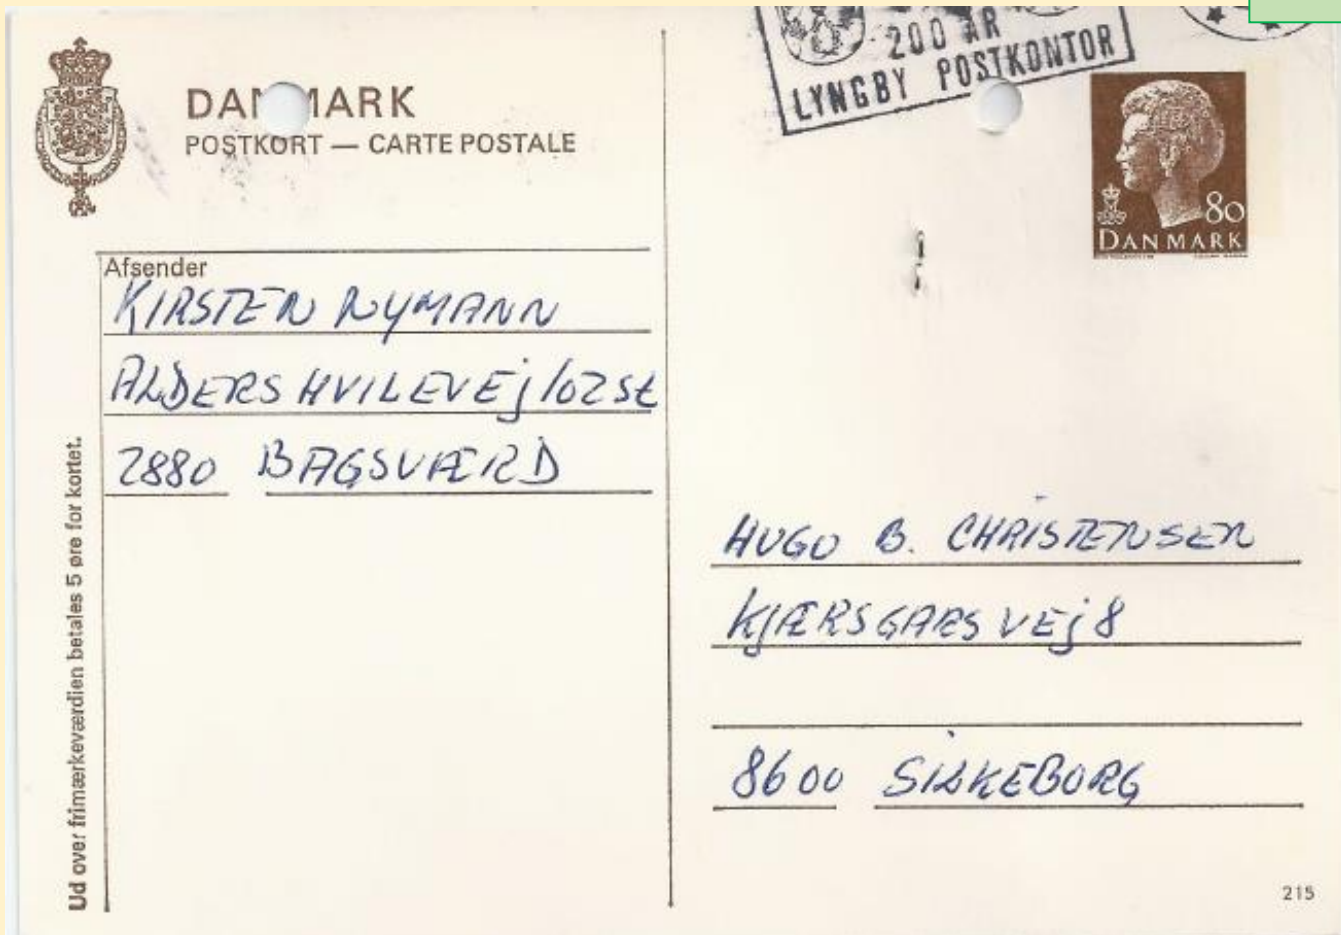 DANMARK
POSTKORT — CARTE POSTALE
Afsender
KIRSTEN NYMANN
ALDERSHVILEVEj 102 st
2880 BAGSVÆRD
Ud over frimærkeværdien betales 5 øre for kortet.
200 ÅR
LYNGBY POSTKONTOR
80
DANMARK
HUGO B. CHRISTENSEN
KJÆRSGARSVEj 8
8600 SILKEBORG
215